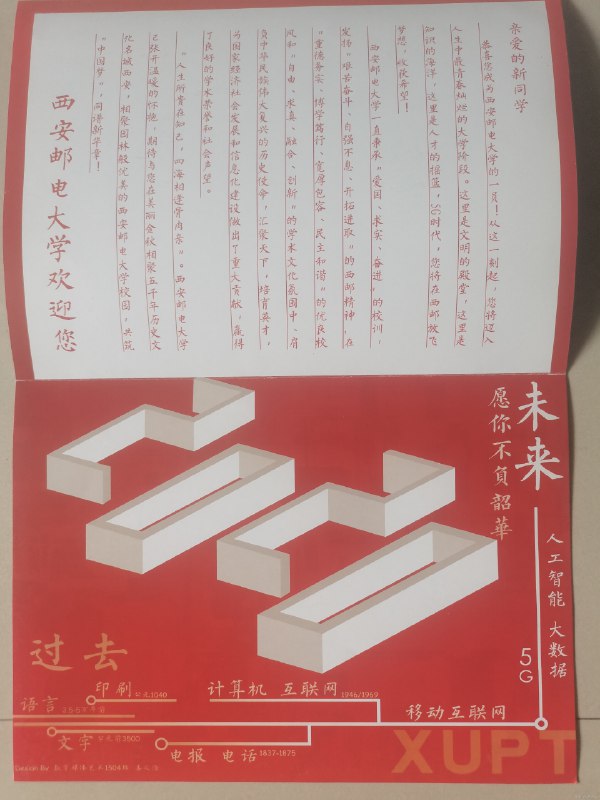 亲爱的新同学
恭喜您成为西安邮电大学的一员！从这一刻起，您将迈入
人生中最青春灿烂的大学阶段。这里是文明的殿堂，这里是
知识的海洋，这里是人才的摇篮，5G时代，您将在西邮放飞
梦想，收获希望！
西安邮电大学一直秉承“爱国、求实、奋进”的校训，
发扬“艰苦奋斗、自强不息、开拓进取”的西邮精神，在
“重德务实、博学笃行、宽厚包容、民主和谐”的优良校
风和“自由、求真、融合、创新”的学术文化氛围中，肩
负中华民族伟大复兴的历史使命，汇聚天下，培育英才，
为国家经济社会发展和信息化建设做出了重大贡献，赢得
了良好的学术荣誉和社会声望。
“人生所贵在知己，四海相逢骨肉亲”。西安邮电大学
已张开温暖的怀抱，期待与您在美丽金秋相聚五千年历史文
化名城西安，相聚园林般优美的西安邮电大学校园，共筑
“中国梦”，同谱新华章！
西安邮电大学欢迎您
未来
愿你不负韶華
人工智能 大数据
5G
过去
印刷 公元1040
计算机 互联网 1946/1969
语言
移动互联网
文字 公元前3500
电报 电话 1837-1875
XUPT
Design By 数字媒体艺术1504班